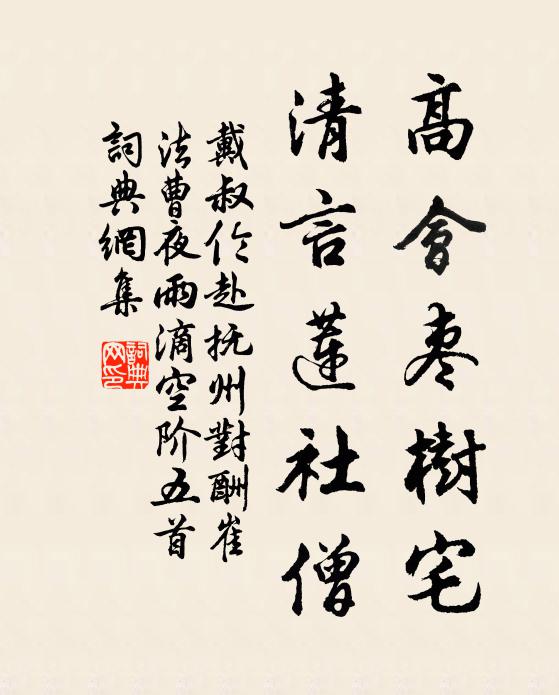 高會枣樹宅
清言蓮社僧
戴叔伦赴抚州對酬崔
法曹夜雨滴空阶五首
詞典網集
詞典
网印